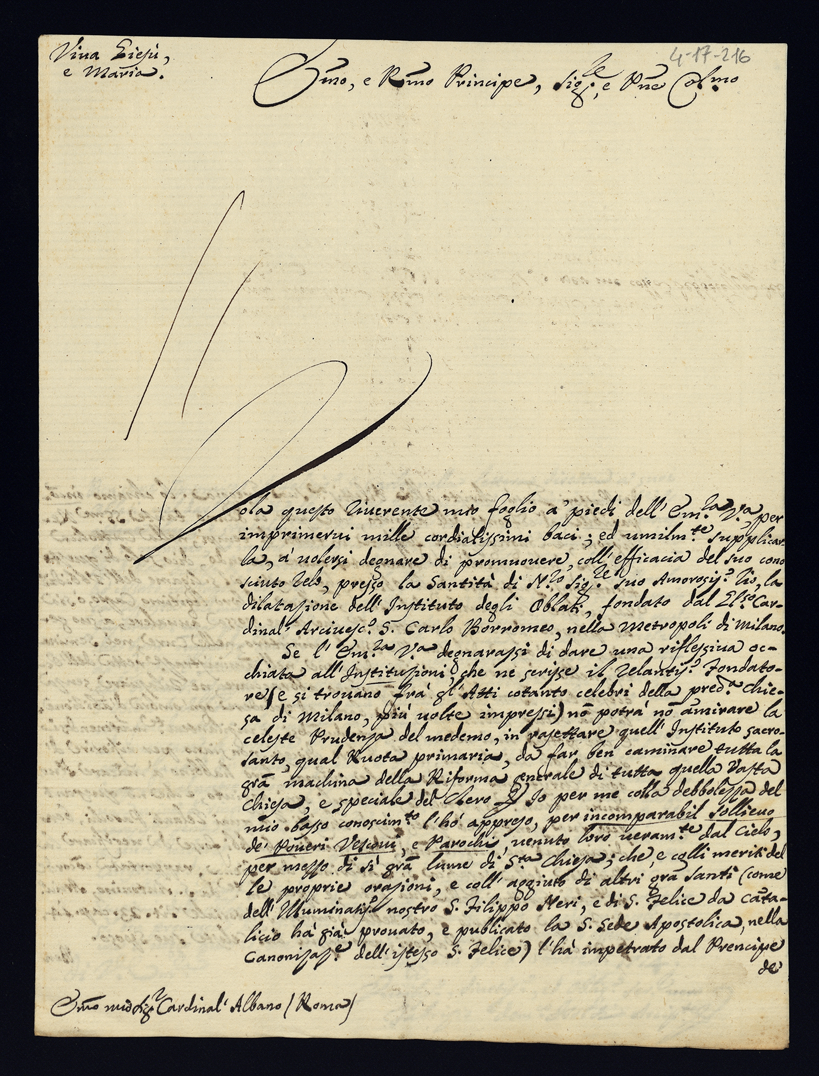 Viva Giesù,
e Maria.
4-17-216
Emo, e Rmo Principe, Sigre, e Pne Colmo
Vola questo riverente mio foglio a' piedi dell' Em.za V.a per
imprimervi mille cordialissimi baci; ed umilmte supplicar
la, a' volersi degnare di promuovere, coll' efficacia del suo cono
sciuto Zelo, presso la Santità di N.ro Sig.re suo Amorosiss.o Zio, la
dilatazione dell' Instituto degli Oblati, fondato dal Car-
dinal' Arcivesc.o S. Carlo Borromeo, nella Metropoli di Milano.
Se l' Em.za V.a degnarassi di dare una riflessiva oc-
chiata all' Instituzioni, che ne scrisse il Zelantiss.o Fondato-
re (e si trovano frà gl' Atti cotanto celebri della pred.a Chie-
sa di Milano, più volte impressi) nõ potrà nõ amirare la
celeste Prudenza del medemo, in rassettare quell' Instituto sacro-
santo, qual Ruota primaria, da far ben caminare tutta la
grã machina della Riforma generale di tutta quella Vasta
Chiesa, e speciale del Clero. Io per me colla debbolezza del
mio basso conoscimto l' hò appreso, per incomparabil Sollievo
de' Poveri Vescovi, e Parochi, venuto loro veramte dal Cielo,
per mezzo di sì grã lume di Sta Chiesa; che, e colli meriti del
le proprie orazioni, e coll' aggiuto di altri grã Santi (come
dell' Illuminatiss.o nostro S. Filippo Neri, e di S. Felice da Canta-
licio hà già provato, e publicato la S. Sede Apostolica, nella
Canonizaz.e dell' istesso S. Felice) l' hà impetrato dal Prencipe
de'
Emo mio Sigr Cardinal' Albano (Roma)